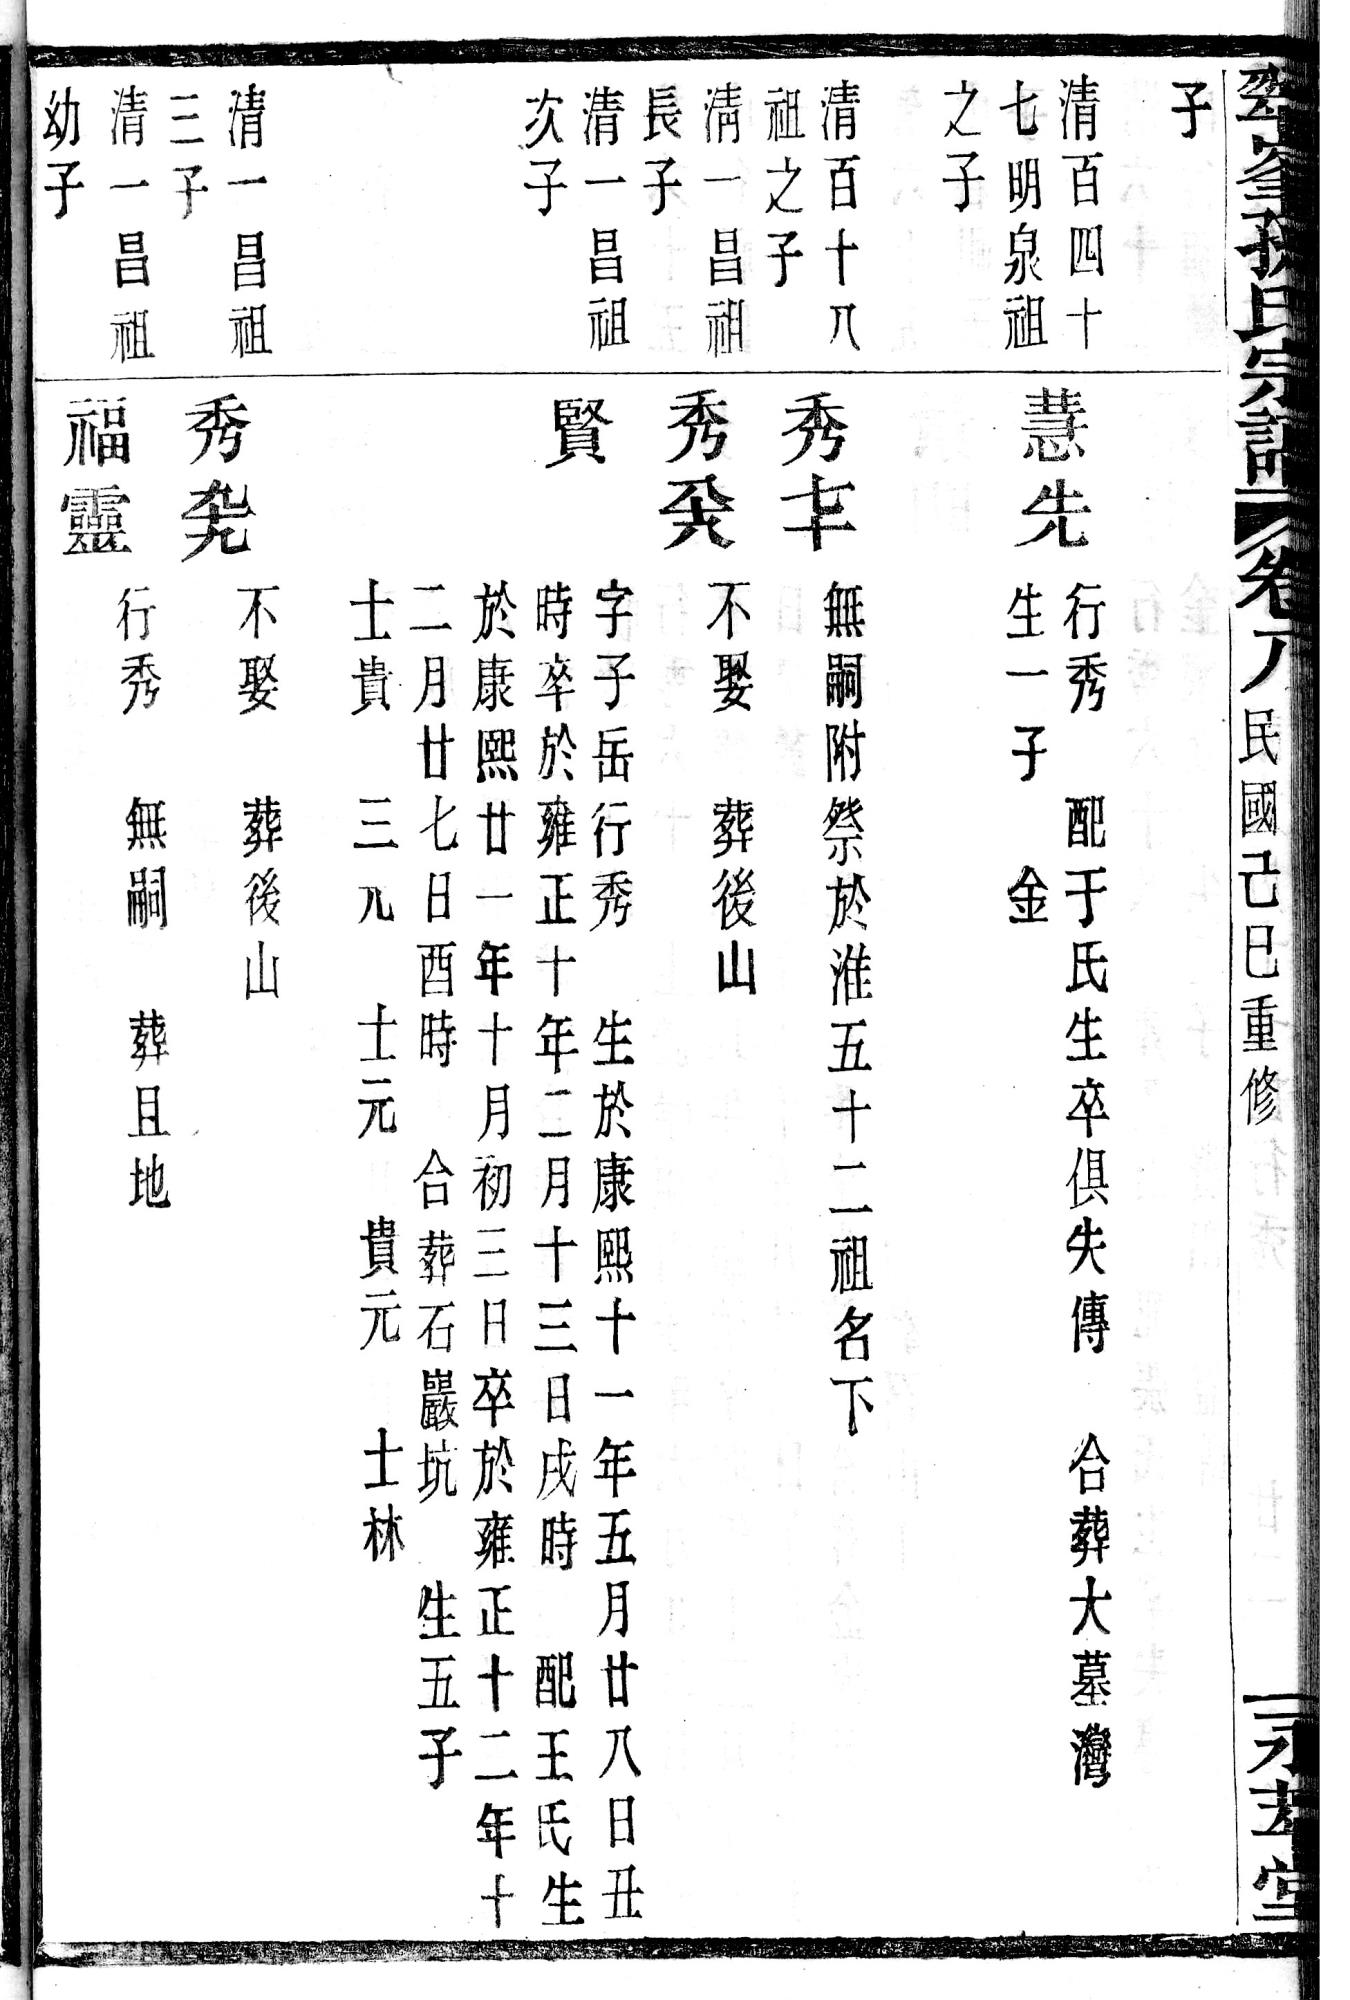 孫氏宗譜
卷八
民國己巳重修
永萃堂
子
清百四十
七明泉祖
之子
清百十八
祖之子
清一昌祖
長子
清一昌祖
次子
清一昌祖
三子
清一昌祖
幼子
慧先
行秀　配于氏生卒俱失傳　合葬大墓灣
生一子　金
秀七十
無嗣附祭於淮五十二祖名下
秀六八
不娶　葬後山
賢
字子岳行秀　生於康熙十一年五月廿八日丑
時卒於雍正十年二月十三日戌時　配王氏生
於康熙廿一年十月初三日卒於雍正十二年十
二月廿七日酉時　合葬石巖坑　生五子
士貴　三元　士元　貴元　士林
秀
不娶　葬後山
福靈
行秀　無嗣　葬且地